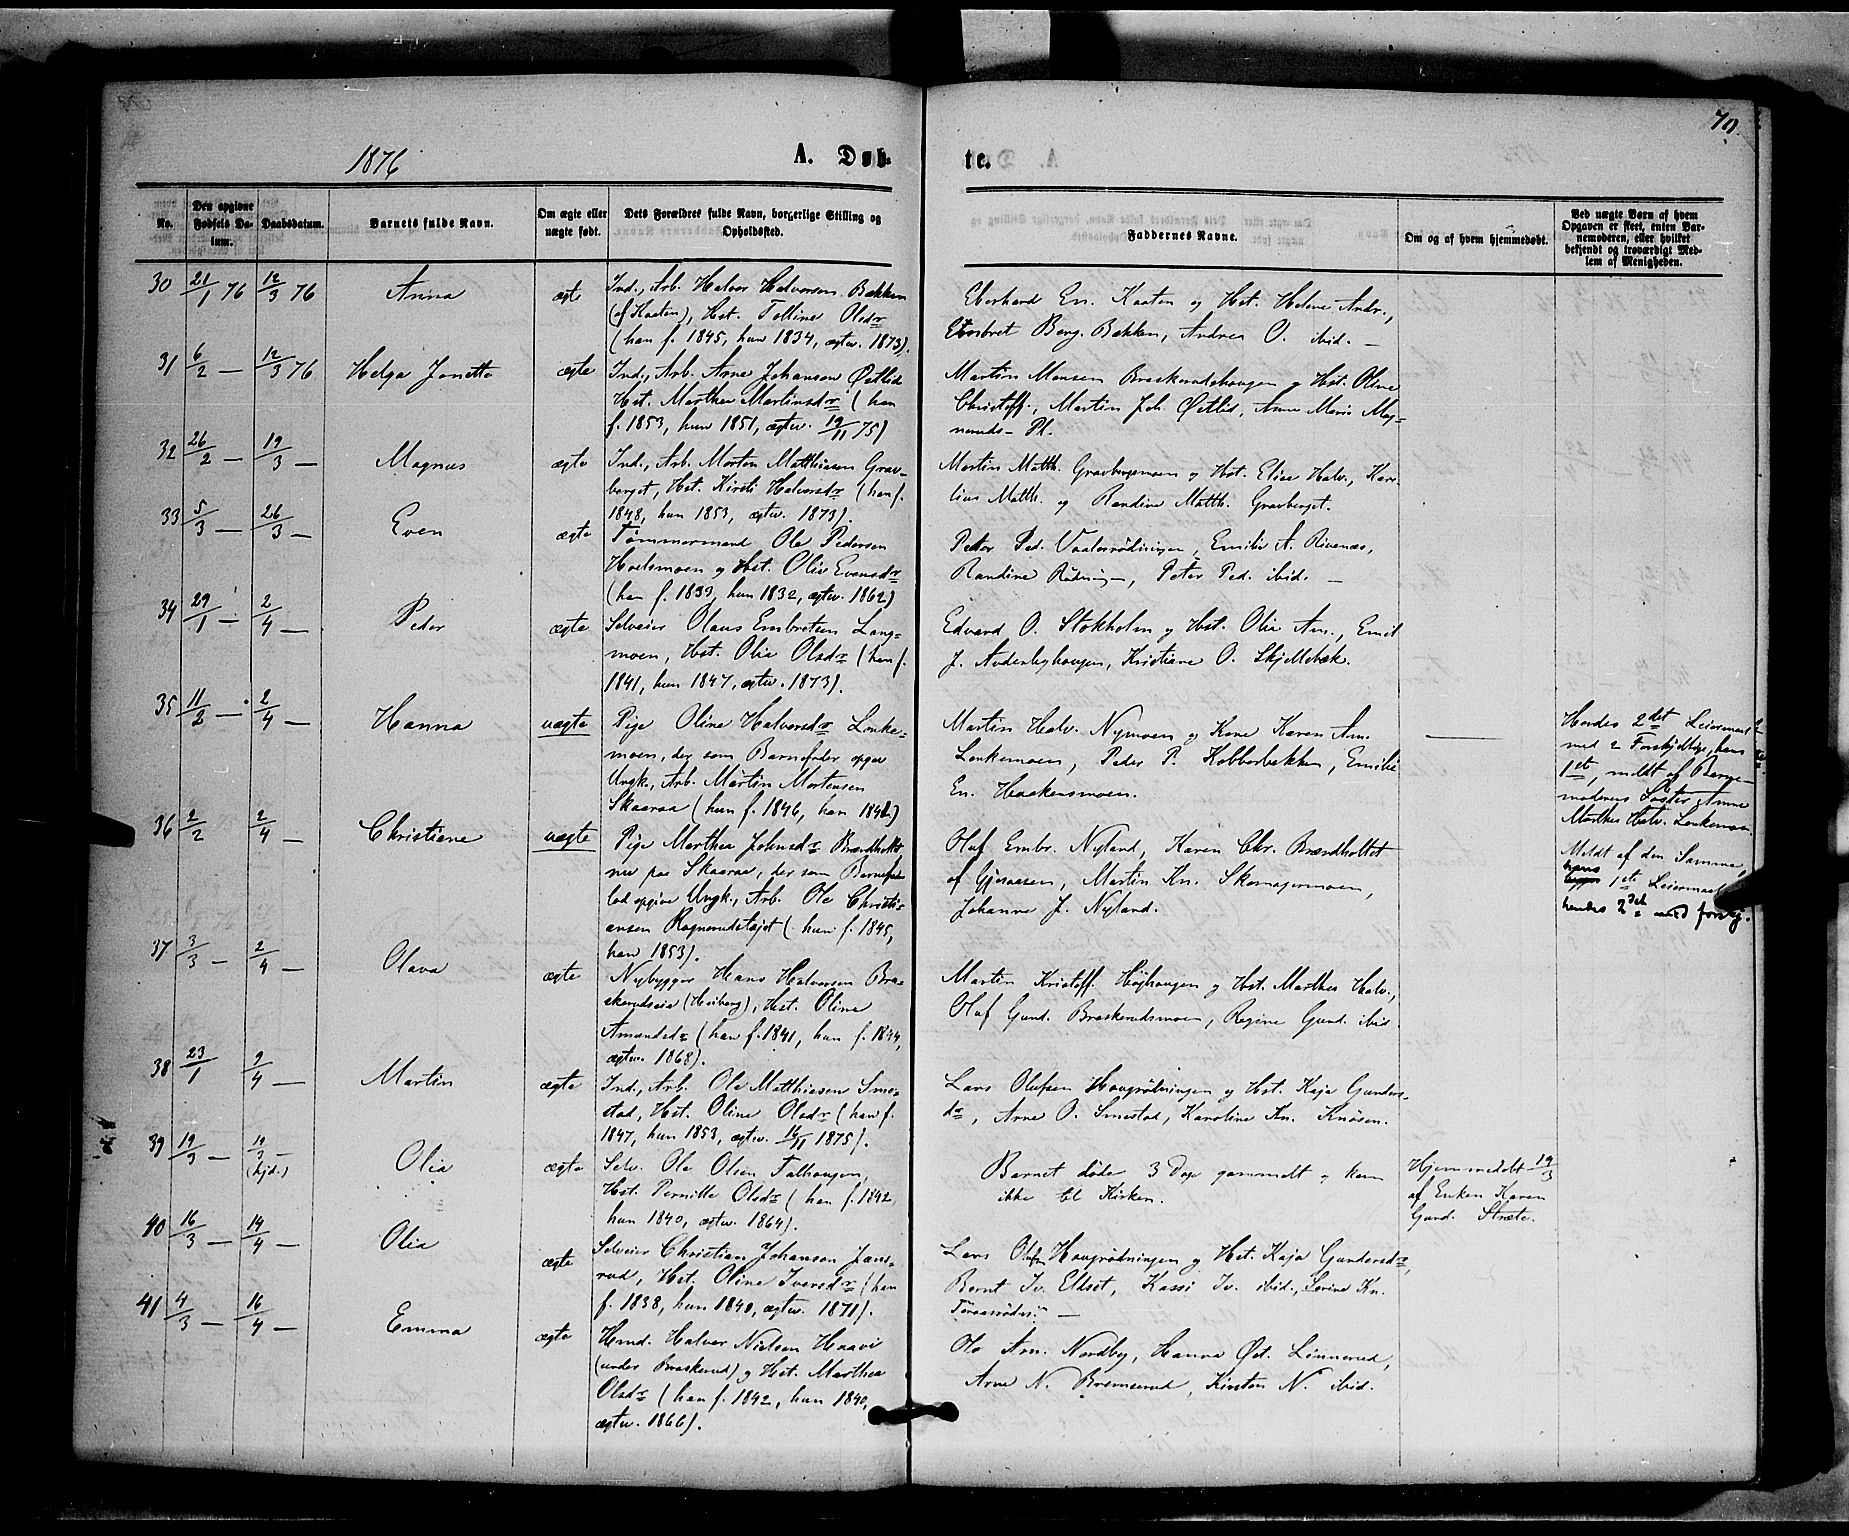 70.
1876
A. Døb-
te.
No.
Den opgivne Fødsels Da-
tum.
Daabsdatum.
Barnets fulde Navn.
Om ægte eller
uægte født.
Dets Forældres fulde Navn, borgerlige Stilling og
Opholdssted.
Faddernes Navne.
Om og af hvem hjemmedøbt.
Ved uægte Børn af hvem
Opgaven er skeet, enten Bar-
nemoderen, eller hvilket
bekjendt og troværdigt Med-
lem af Menigheden.
30 21/1 76 12/3 76 Anna ægte
Ind., Arb. Halvor Halvorsen Bakken
(af Kaaten), Hst. Olsdr
(han f. 1845, hun 1834, ægtev. 1873).
Eberhard En. Kaaten og Hst. Helene Andr.,
Embret Berg. Bakken, Andrea O. ibid. —
31 6/2 — 12/3 76 Helga Jonette ægte
Ind., Arb. Arne Johansen Østlid
Hst. Marthea Martinsdr (han
f. 1853, hun 1851, ægtev. 19/11 75)
Martin Monsen Braskerudshaugen og Hst. Oline
Christoff., Martin Joh. Østlid, Anne Marie Mag-
neruds- Pl.
32 26/2 — 19/3 — Magnus ægte
Ind., Arb. Morten Matthisen Grav-
berget, Hst. Kirsti Halvorsdr (han f.
1848, hun 1853, ægtev. 1873).
Martin Matth. Gravbergsmoen og Hst. Elise Halv., Kare-
lius Matth. og Randine Matth. Gravberget.
33 5/3 — 26/3 — Even ægte
Tømmermand Ole Pedersen
Hoelsmoen og Hst. Olia Evensdr
(han f. 1833, hun 1832, ægtev. 1862)
Peder Ped. Vaalerrødningen, Emilie A. Rivenæs,
Randine Rødning—, Peter Ped. ibid. —
34 29/1 — 2/4 — Peder ægte
Selveier Olaus Embretsen Lang-
moen, Hst. Olia Olsdr (han f.
1841, hun 1847, ægtev. 1873).
Edvard O. Stokholm og Hst. Olia Am., Emil
J. Anderberghaugen, Kristiane O. Skjellebæk.
35 11/2 — 2/4 — Hanna uægte
Pige Oline Halvorsdr Lenke-
moen, der som Barnefader opgav
Ungk., Arb. Martin Mortensen
Skaaraa (hun f. 1846, han 1842)
Martin Halv. Nymoen og Kone Karen Am.
Lenkemoen, Peder P. Kobberbakken, Emilie
En. Haakensmoen.
Hendes 2det Leiermaal
med 2 Forskjellige, hans
1ste, meldt af Barne-
moderens Søster Anne
Marthea Halv. Lenkemoen.
36 2/2 2/4 — Christiane uægte
Pige Marthea Johnsdr Brændholtet
nu paa Skaaraa, der som Barnefa-
lod opgive Ungk., Arb. Ole Christi-
ansen Ragnerudstøjet (hun f. 1845,
han 1853).
Oluf Embr. Nyland, Karen Chr. Brændholtet
af Gjeraasen, Martin Kn. Skomagermoen,
Johanne J. Nyland.
Meldt af den Samme,
hans 1ste Leiermaal
hendes 2det med forskj.
37 3/3 — 2/4 — Olava ægte
Nybygger Hans Halvorsen Bra-
skerudseie (Hoiberg), Hst. Oline
Amundsdr (han f. 1841, hun f. 1844,
ægtev. 1868).
Martin Kristoff. Højhaugen og Hst. Marthea Halv.,
Oluf Gund. Braskerudsmoen, Regine Gund. ibid.
38 23/1 9/4 — Martin ægte
Ind., Arb. Ole Matthiesen Sme-
stad, Hst. Oline Olsdr (han f.
1847, hun 1853, ægtev. 16/11 1875).
Lars Olufsen Haugrødningen og Hst. Kaja Gunders-
dr, Arne O. Smestad, Karoline Kn. Knøsen.
39 19/3 — 19/3 —
(hjd.)
Olia ægte
Selv. Ole Olsen Falhaugen,
Hst. Pernille Olsdr (han f. 1842,
hun 1840, ægtev. 1864).
Barnet døde 3 Dage gammelt og kom
ikke til Kirken.
Hjemmedøbt 19/3
af Enken Karen
Gund. Stræte.
40 16/3 — 14/4 — Olia ægte
Selveier Christian Johansen Jans-
rud, Hst. Oline Iversdr (han
f. 1838, hun 1840, ægtev. 1871).
Lars Olufs. Haugrødningen og Hst. Kaja Gundersdr,
Bernt Iv. Eldset, Kassi Iv. ibid., Serine Kn.

41 4/3 — 16/4 — Emma ægte
Hmd. Halvor Nielsen Haavi
(under Braskerud) og Hst. Marthea
Olsdr (han f. 1842, hun 1840,
ægtev. 1866).
Ole Arn. Nordby, Hanna Øst. Linnerud,
Arne N. Bremserud, Kirsten N. ibid.